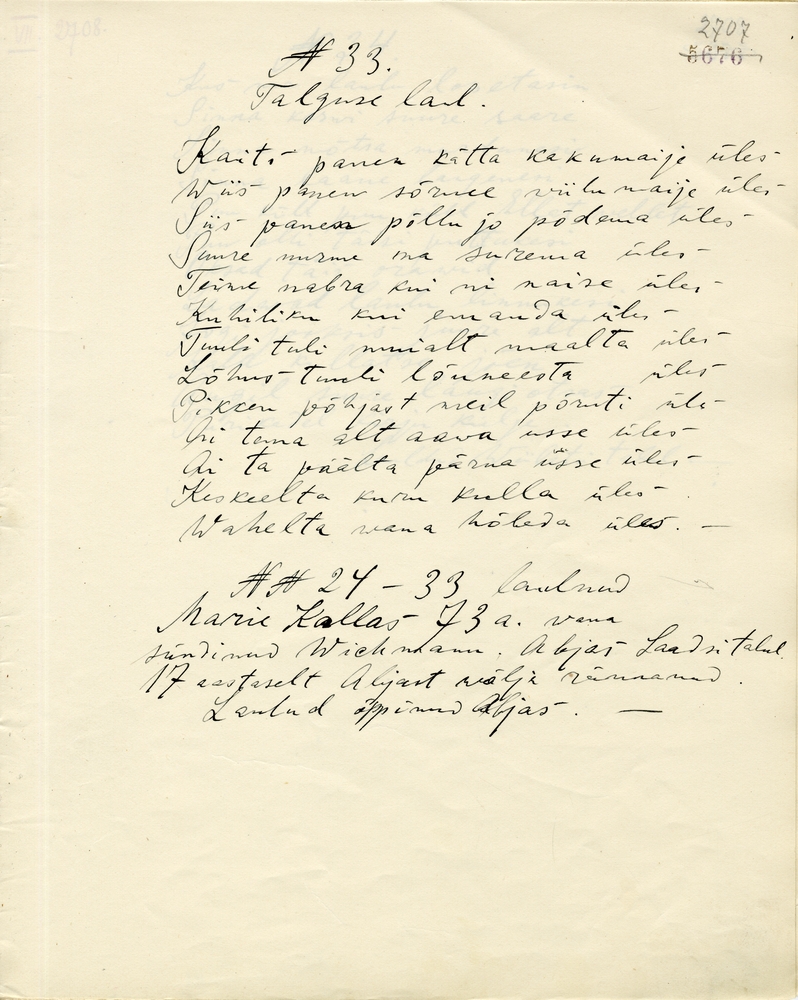 2707
5676
N 33.
Talguse laul.
Kaits panen kätta kakumaije üles
Wiis panen sõrmee viilumaije üles
Siis panen põllu jo põdema üles
Suure nurme ma surema üles
Teine nabra kui ni naise üles
Kuhiliku kui emanda üles
Tuuli tuli muialt maalta üles
Lõhus tuuli lõuneesta üles
Pikken põhjast meil põruti üles
Ai tema alt aawa usse üles
Ai ta päälta pärna üsse üles
Keskeelta kuru kulla üles
Wahelta vana hõleda üles. —
NN 24 – 33 laulnud
Marie Kallas 73 a. vana
sündinud Wichmann. Abjas Laadsi talul.
17 aastaselt Abjast wälja rännanud.
Laulud õppinud Abjas. —